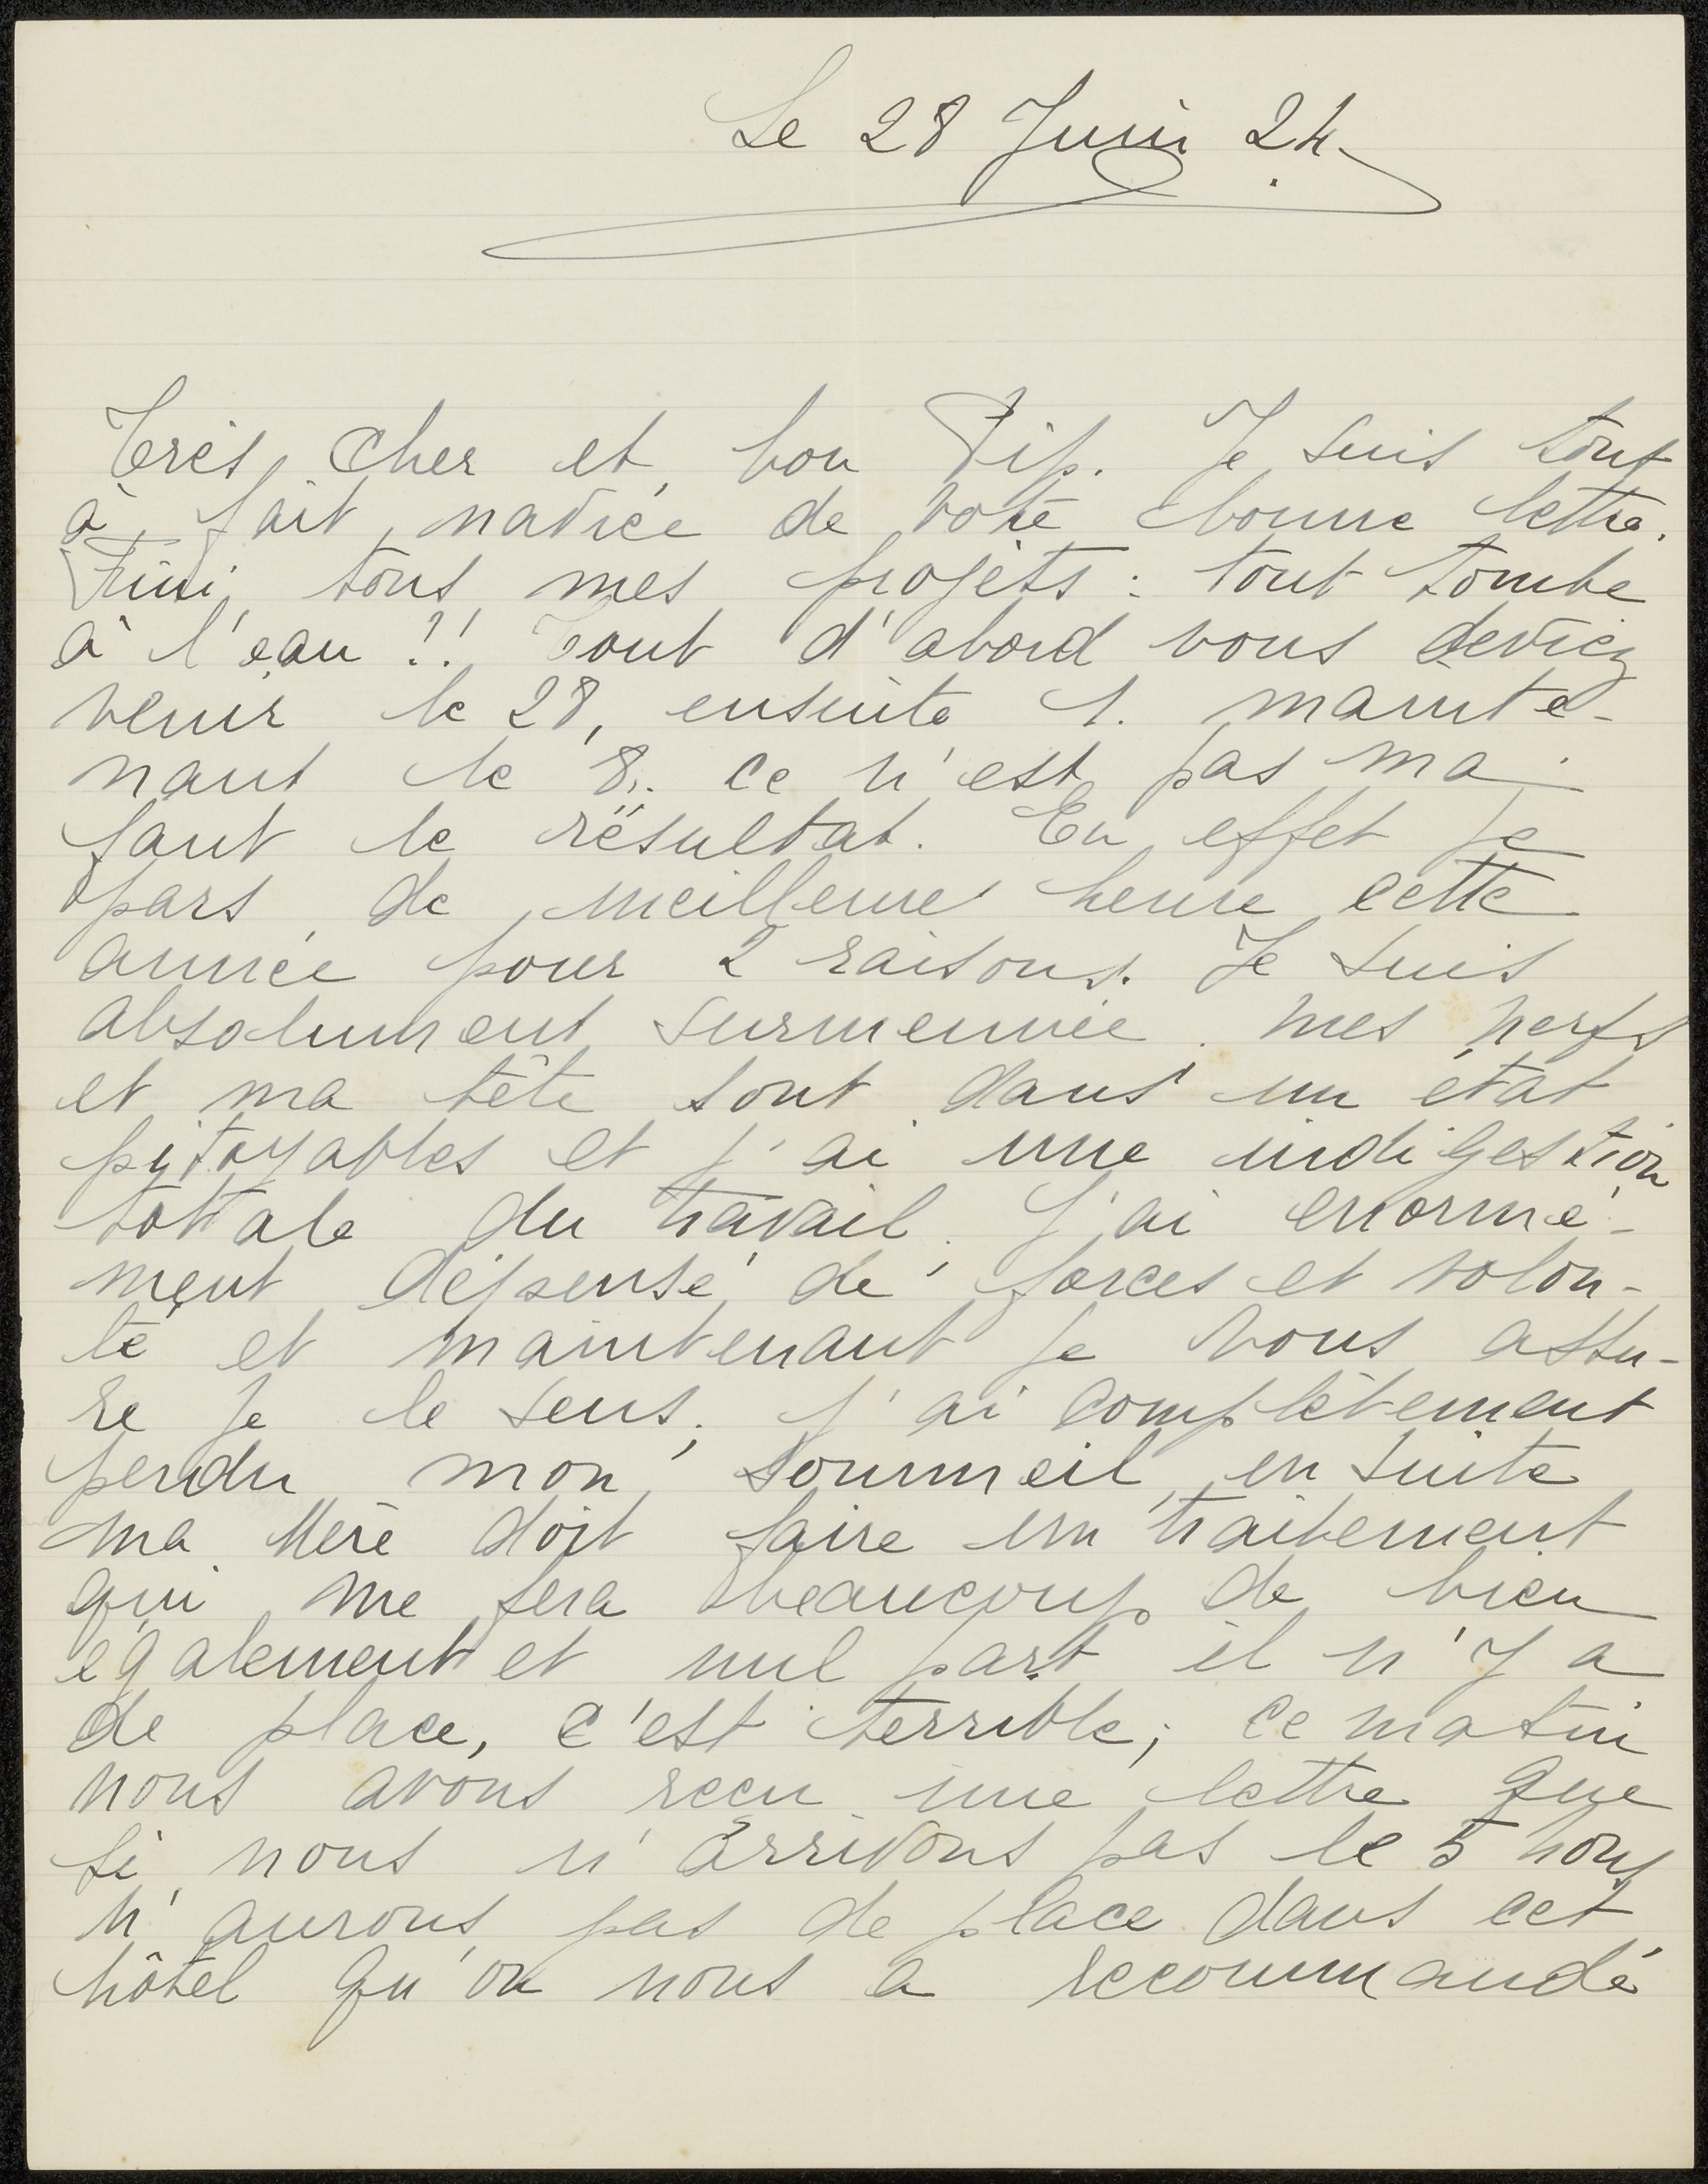 Le 28 Juin 24.
Très cher et bon Pip. Je suis tout
à fait navrée de votre bonne lettre.
Fini tous mes projets : tout tombe
à l'eau !! Tout d'abord vous deviez
venir le 28, ensuite 1. mainte-
nant le 8. ce n'est pas ma
faut le résultat. En effet je
pars de meilleure heure cette
année pour 2 raisons. Je suis
absolument surmennée. mes nerfs
et ma tête sont dans un état
pitoyables et j'ai une indigestion
tottale du travail. J'ai enormé-
ment dépensé de forces et volon-
té et maintenant je vous assu-
re je le sens; j'ai complètement
perdu mon sommeil, en suite
ma Mère doit faire un traitement
qui me fera beaucoup de bien
également et nul part il n'y a
de place, c'est terrible; ce matin
nous avons reçu une lettre que
si nous n'arrivons pas le 5 nous
n'aurons pas de place dans cet
hôtel qu'on nous a recommandé